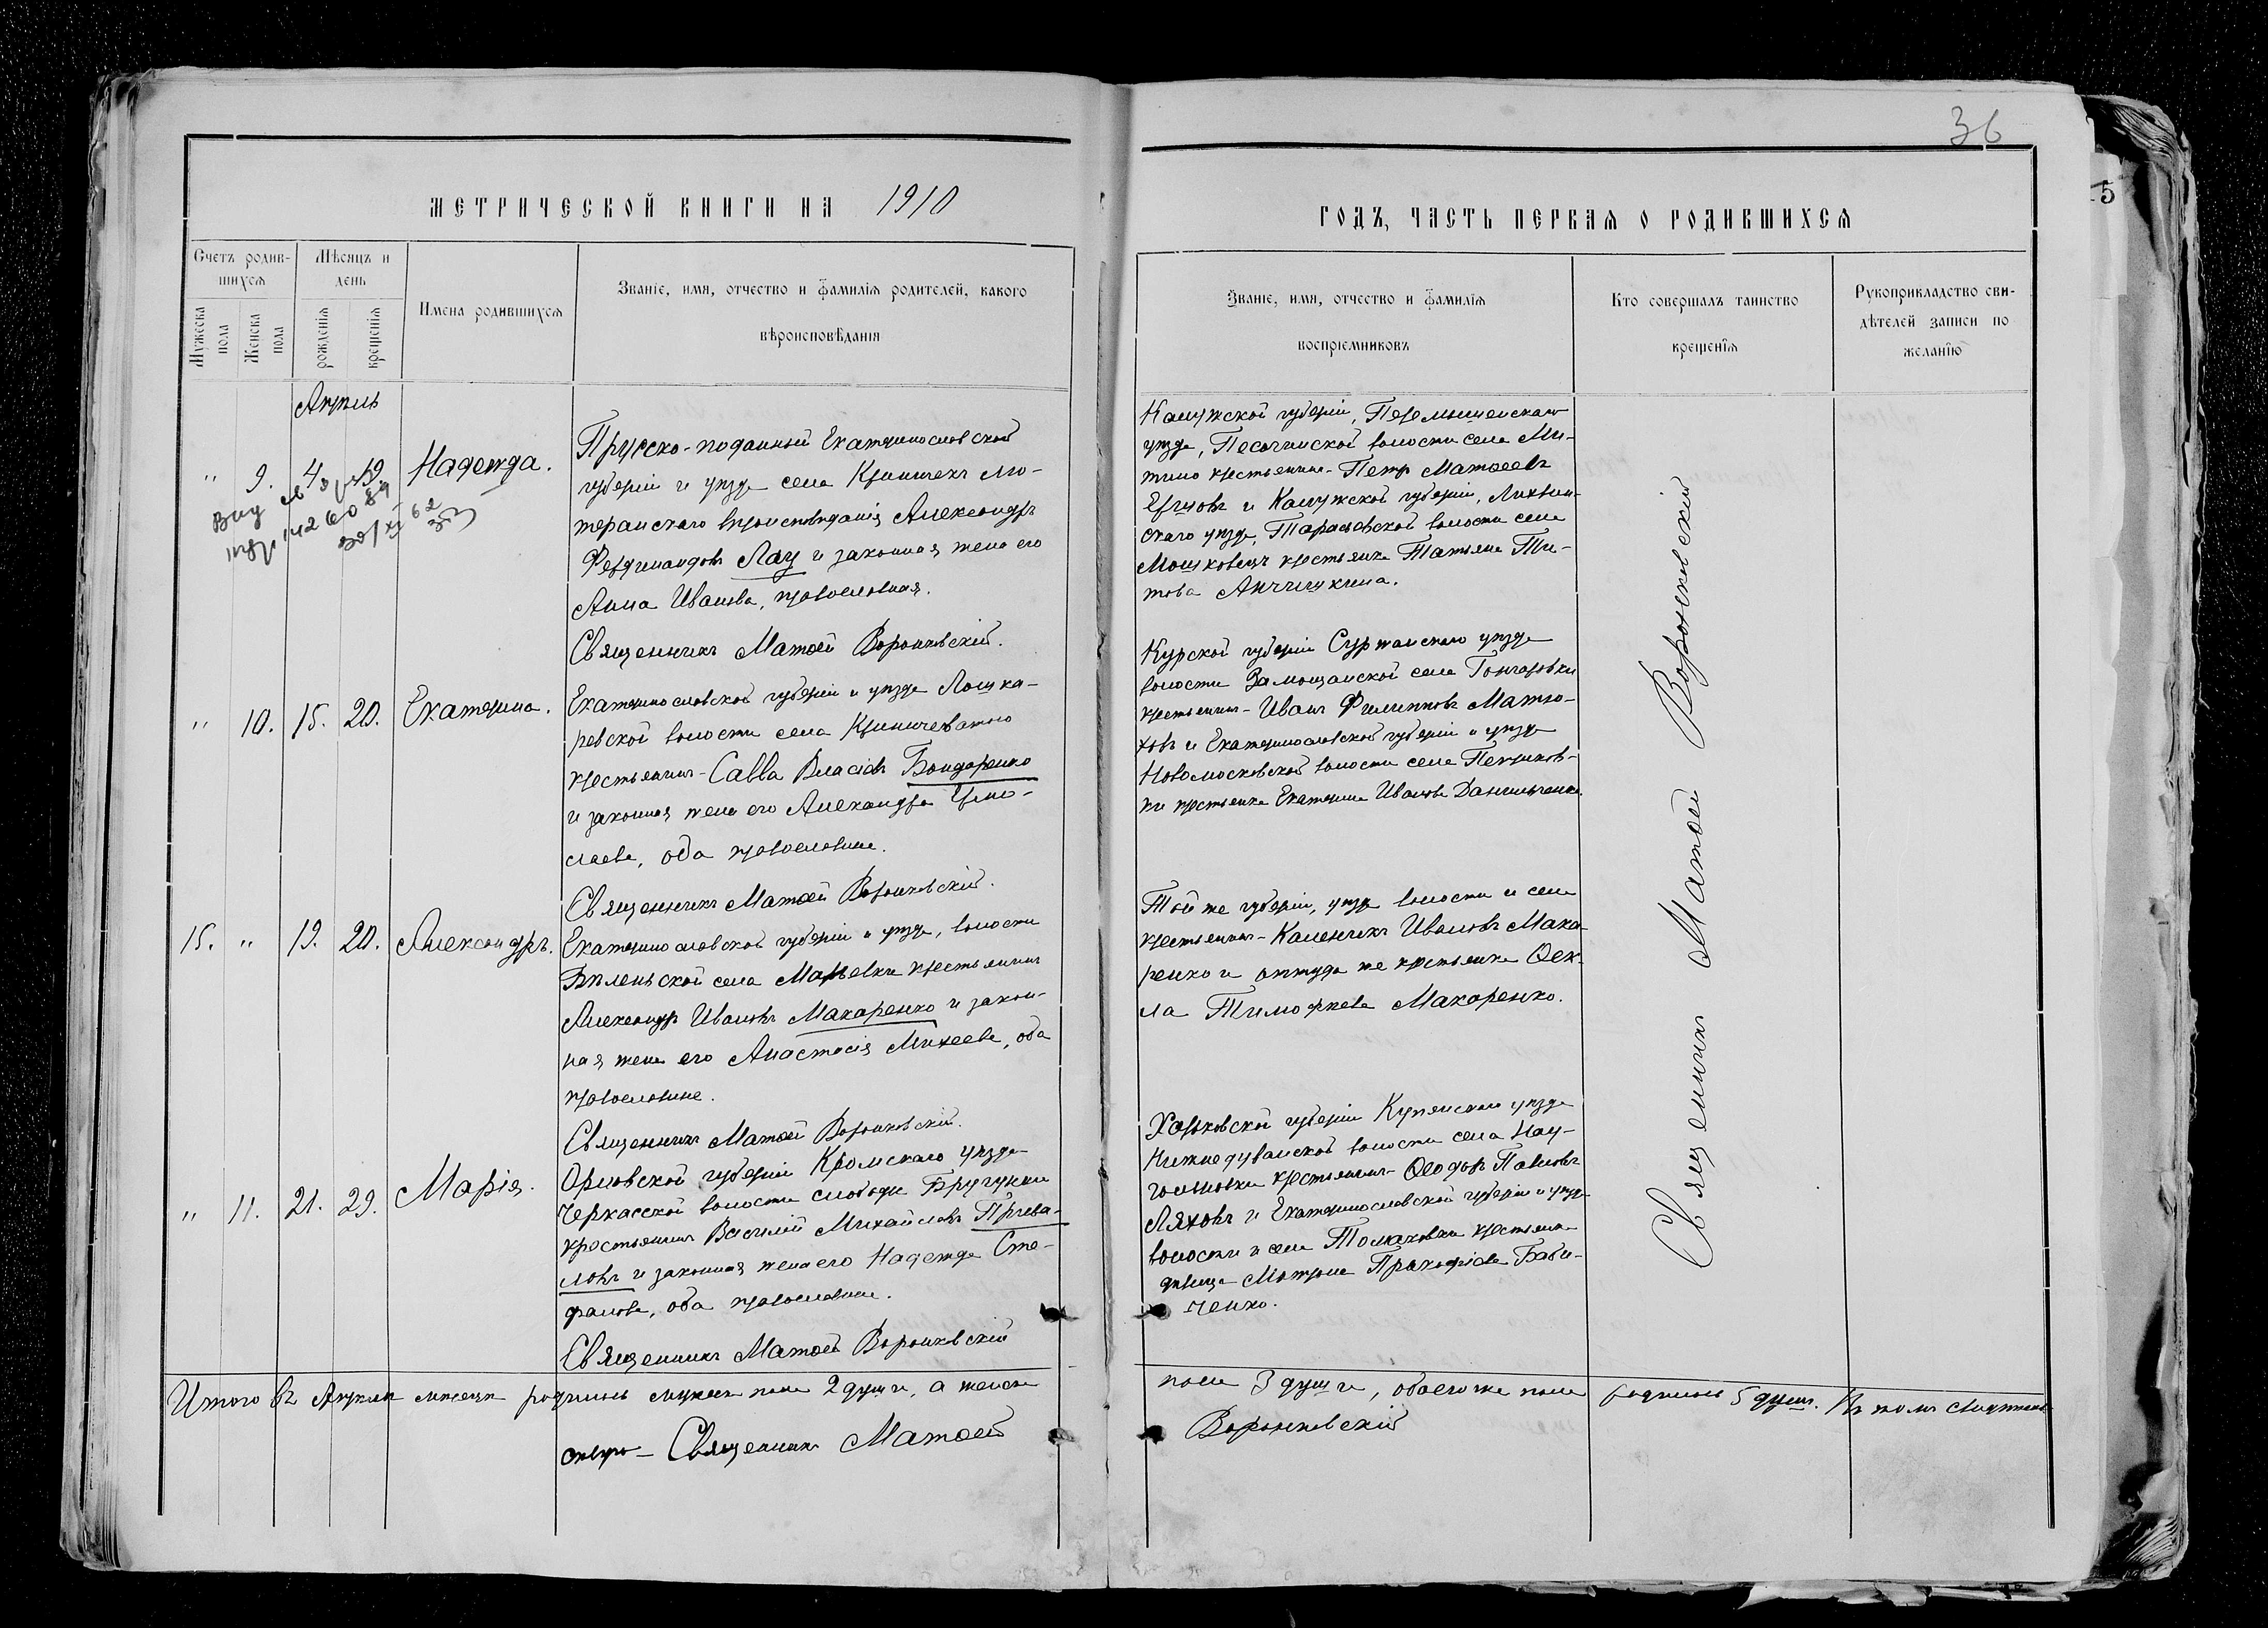 36
5
МЕТРИЧЕСКОЙ КНИГИ НА 1910
ГОДЪ, ЧАСТЬ ПЕРВАЯ О РОДИВШИХСЯ
Счетъ родив-
шихся
Мужеска
пола
Женска
пола
Мѣсяцъ и
день
рожденія
крещенія
Имена родившихся
Званіе, имя, отчество и фамилія родителей, какого
вѣроисповѣданія
Званіе, имя, отчество и фамилія
воспріемниковъ
Кто совершалъ таинство
крещенія
Рукоприкладство сви-
дѣтелей записи по
желанію
Апрѣль
" 9. 4 19 Надежда.
Прусско-поданный Екатеринославской
губерніи и уѣзда села Криничекъ лю-
теранскаго вѣроисповѣданія Александръ
Фердинандовъ Лау и законная жена его
Анна Иванова, православная.
Священникъ Матѳей Воронковскій.
Калужской губерніи, Перемышельскаго
уѣзда, Песоченской волости села Ми-
тино крестьянинъ - Петръ Матѳеевъ
и Калужской губерніи, Лихвин-
скаго уѣзда, волости села
крестьянка Татьяна Ти-
това
" 10. 15. 20. Екатерина.
Екатеринославской губерніи и уѣзда Лошка-
ревской волости села Криничеватаго
крестьянинъ - Савва Власіевъ Бондаренко
и законная жена его Александра Ермо-
лаева, оба православные.
Священникъ Матѳей Воронковскій.
Курской губерніи Суржанскаго уѣзда
волости Замощанской села Гончаровки
крестьянинъ - Иванъ Филипповъ Матю-
ховъ и Екатеринославской губерніи и уѣзда
Новомосковской волости села
ки крестьянка Екатерина Иванова Данильченко.
15. " 19. 20. Александръ.
Екатеринославской губерніи и уѣзда, волости
Бѣленьской села Марьевки крестьянинъ
Александръ Ивановъ Макаренко и закон-
ная жена его Анастасія Михеева, оба
православные.
Священникъ Матѳей Воронковскій.
Той же губерніи, уѣзда волости и села
крестьянинъ - Калленикъ Ивановъ Мака-
ренко и оттуда же крестьянка Ѳек-
ла Тимофѣева Макаренко.
" 11. 21. 29. Марія.
Орловской губерніи Кромскаго уѣзда
Черкасской волости слободы
крестьянинъ Василій Михайловъ Прива-
ловъ и законная жена его Надежда Сте-
фанова, оба православные.
Священникъ Матѳей Воронковскій
Харьковской губерніи Купянскаго уѣзда
Нижнедуванской волости села Нау-
гольновки крестьянинъ - Ѳеодоръ Павловъ
Ляховъ и Екатеринославской губерніи и уѣзда
волости и села Томаковки крестьянка
дѣвица Матрона Прокофіева Баби-
ченко.
Священникъ Матѳей Воронковскій
Итого въ Апрѣлѣ мѣсяцѣ родилось мужеска пола 2 души, а женска
пола 3 души, обоего же пола родилось 5 душъ. Въ томъ свидѣтель-
ствую - Священникъ Матѳей
Воронковскій